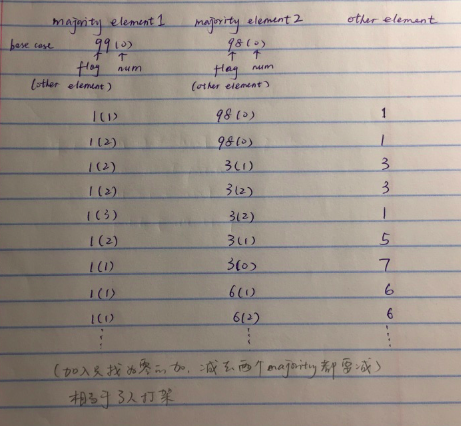 majority element 1 majority element 2 other element
base case 99(0) 98(0)
↑ ↑ ↑ ↑
flag num flag num
(other element) (other element)
1(1) 98(0) 1
1(2) 98(0) 1
1(2) 3(1) 3
1(2) 3(2) 3
1(3) 3(2) 1
1(2) 3(1) 5
1(1) 3(0) 7
1(1) 6(1) 6
1(1) 6(2) 6
⋮ ⋮ ⋮
(加入只找为零的加, 减去两个majority都要减)
相当于3人打架